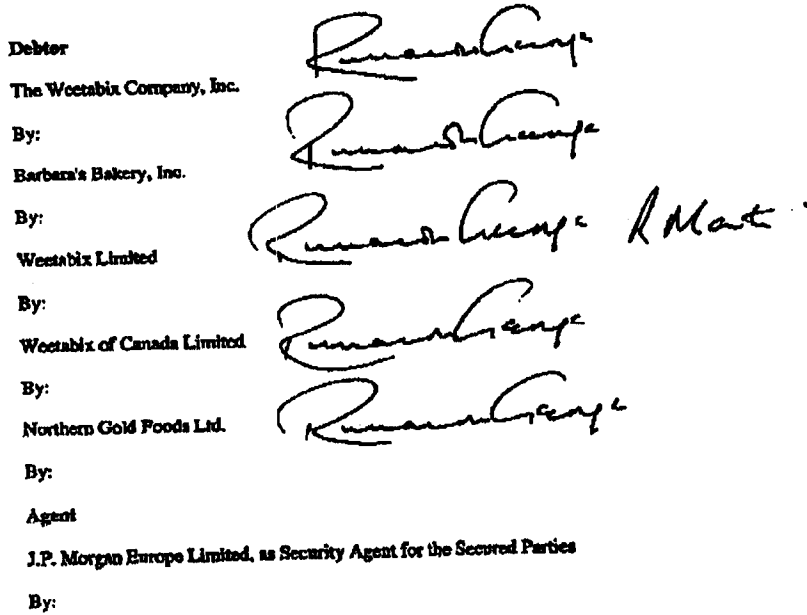 Debtor
The Weetabix Company, Inc.
By:
Barbara's Bakery, Inc.
By:
Weetabix Limited
R Mart
By:
Weetabix of Canada Limited
By:
Northern Gold Foods Ltd.
By:
Agent
J.P. Morgan Europe Limited, as Security Agent for the Secured Parties
By: